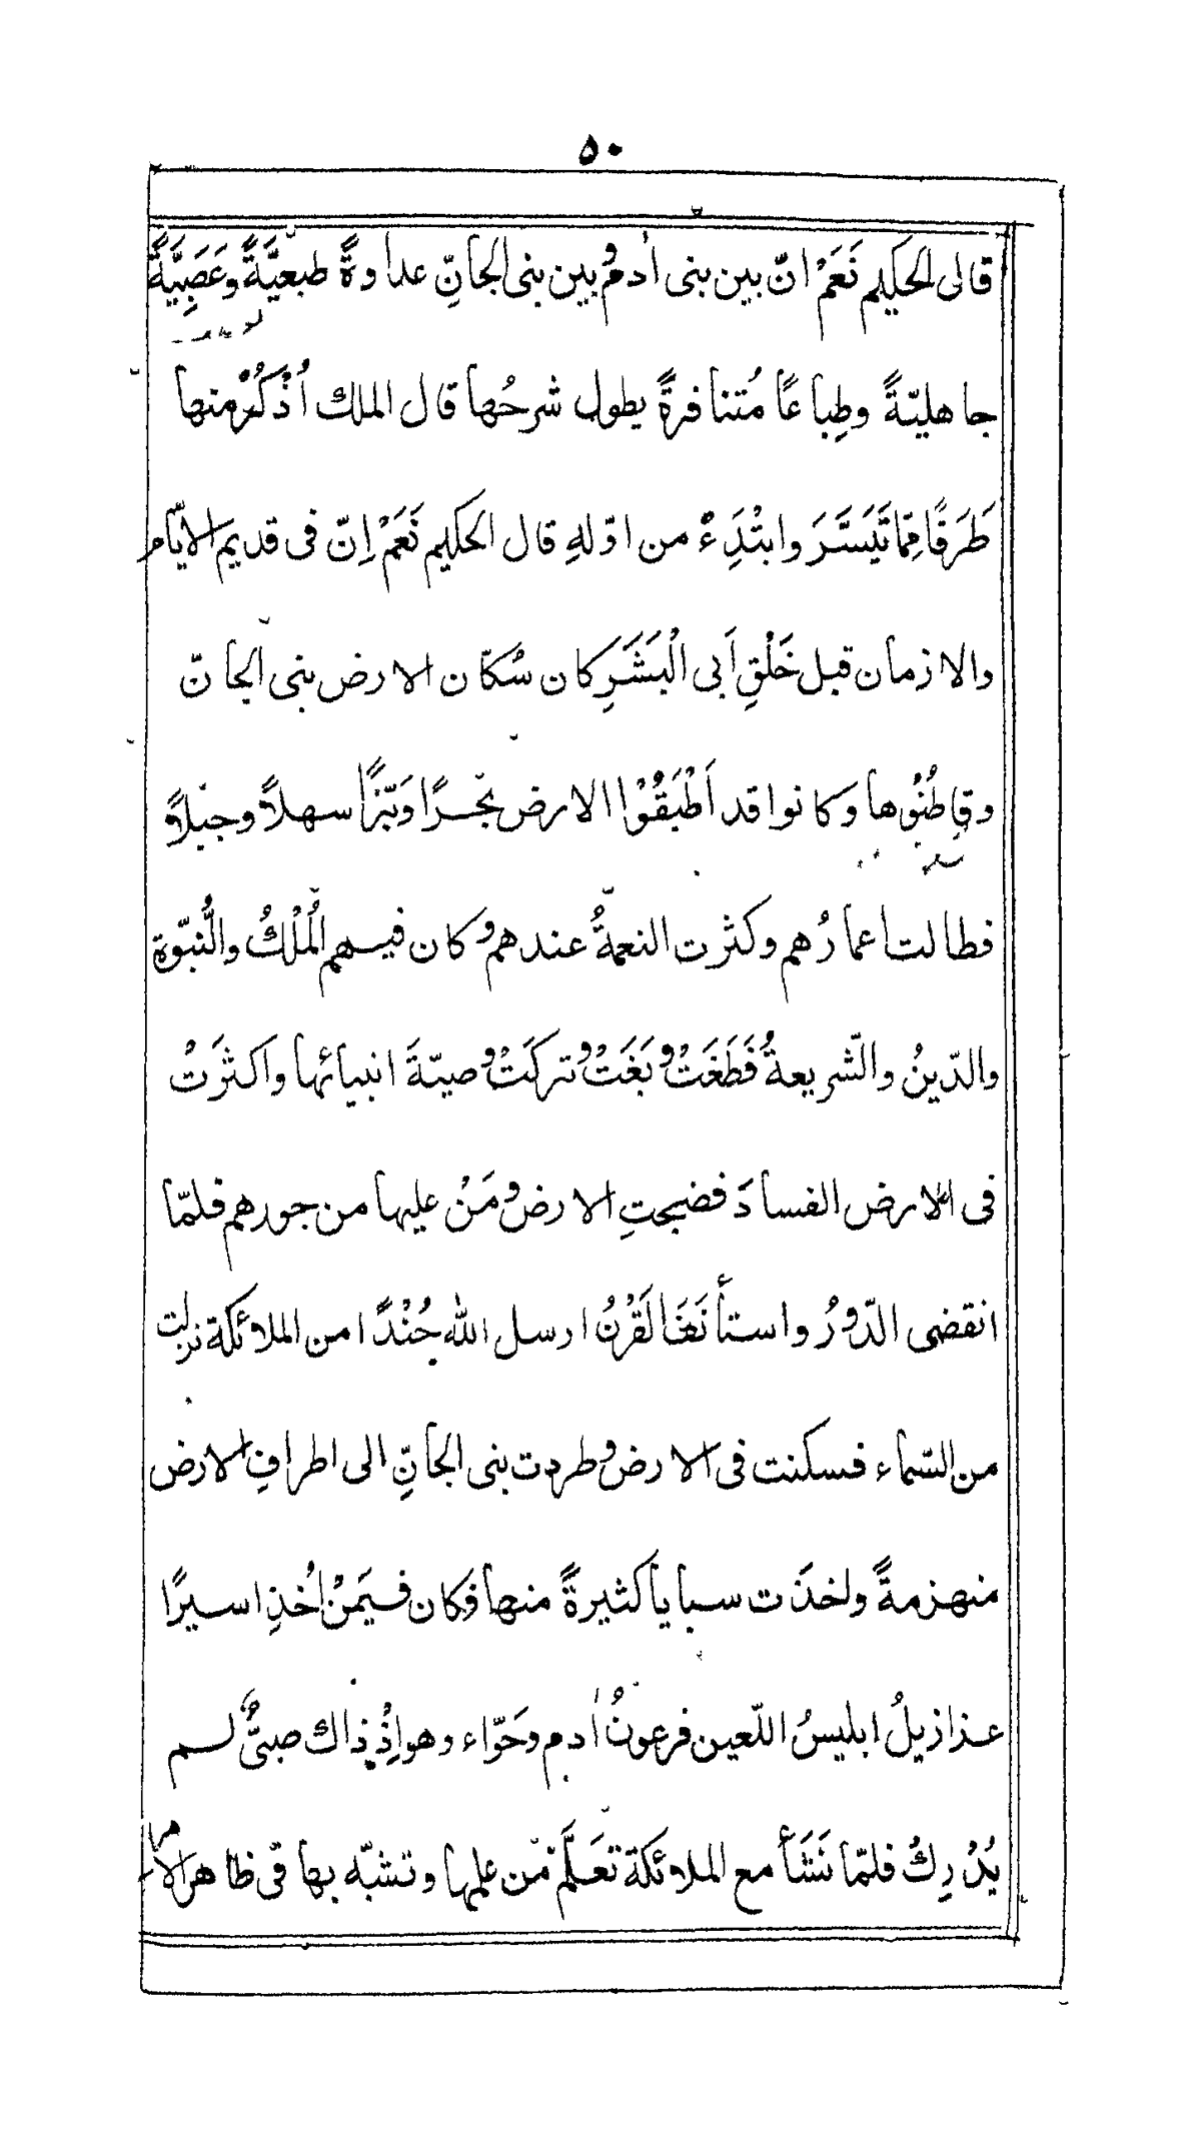 ٥٠
قال الحكيم نَعَمْ انّ بين بنى أدم وبين بنى الجانِّ عداوةً طبعيَّةً وعَصَبِيَّةً
جاهليّةً وطِباعًا مُتنافرةً يطول شرحُها قال الملك أُذْكُرْ منها
طَرَفًا مِمّا تَيَسَّرَ وابتْدَِءْ من اوّلهِ قال الحكيم نَعَمْ اِنّ فى قديم الايّام
والازمان قبل خَلْقِ اَبى الْبَشَرِ كان سُكّان الارض بنى الجانّ
وقاطُنُوها وكانوا قد اَطْبَقُوْا الارض بَحْرًا وَبَرًّا سهلاً وجبلاً
فطالت اعمارُهم وكثرت النعمةُ عندهم وكان فيهم الْمُلْكُ والنُّبوّة
والدّينُ والشّريعةُ فَطَغَتْ وبَغَتْ وتركَتْ وصيّةَ انبيائها واكثرَتْ
فى الارض الفسادَ فضجتِ الارض ومَنْ عليها من جورهم فلمّا
انقضى الدّورُ واستأنَفَ القَرْنُ ارسل الله جُنْدًا من الملائكة نزلت
من السّماء فسكنت فى الارض وطردت بنى الجانِّ الى اطرافِ الارض
منهزمةً واخذَت سبايا كثيرةً منها فكان فيمَنْ اُخذِ اسيرًا
عزازيلُ ابليسُ اللّعين فرعونُ أدم وحَوّاء وهو اِذْ ذاك صبىٌّ لم
يُدْرِكُ فلمّا نَشَأَ مع الملائكة تَعَلَّمَ من علمها وتشبّه بها فى ظاهر الامر